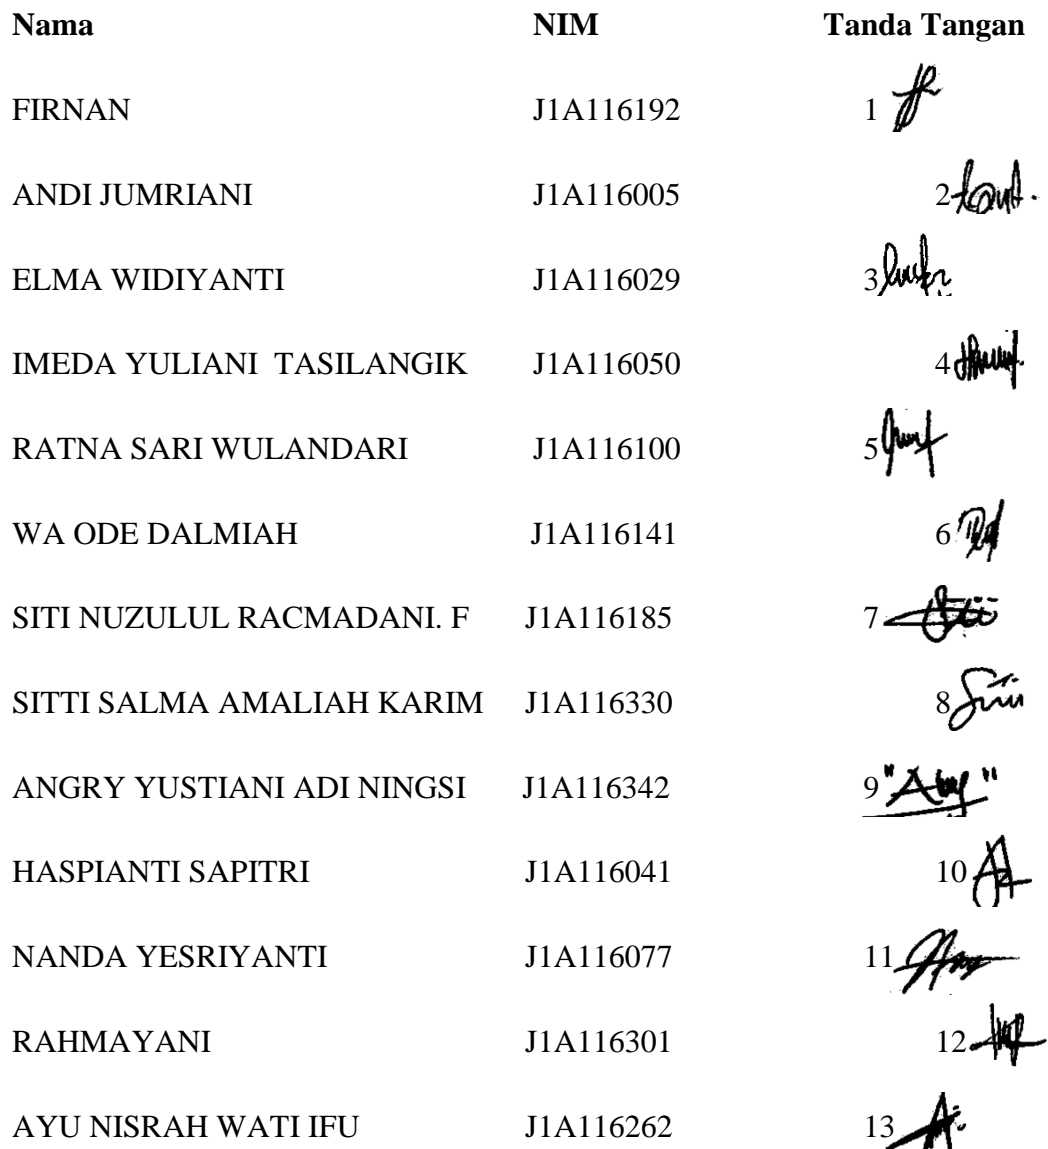 Nama NIM Tanda Tangan
FIRNAN J1A116192 1
ANDI JUMRIANI J1A116005 2
ELMA WIDIYANTI J1A116029 3
IMEDA YULIANI TASILANGIK J1A116050 4
RATNA SARI WULANDARI J1A116100 5
WA ODE DALMIAH J1A116141 6
SITI NUZULUL RACMADANI. F J1A116185 7
SITTI SALMA AMALIAH KARIM J1A116330 8
ANGRY YUSTIANI ADI NINGSI J1A116342 9
HASPIANTI SAPITRI J1A116041 10
NANDA YESRIYANTI J1A116077 11
RAHMAYANI J1A116301 12
AYU NISRAH WATI IFU J1A116262 13